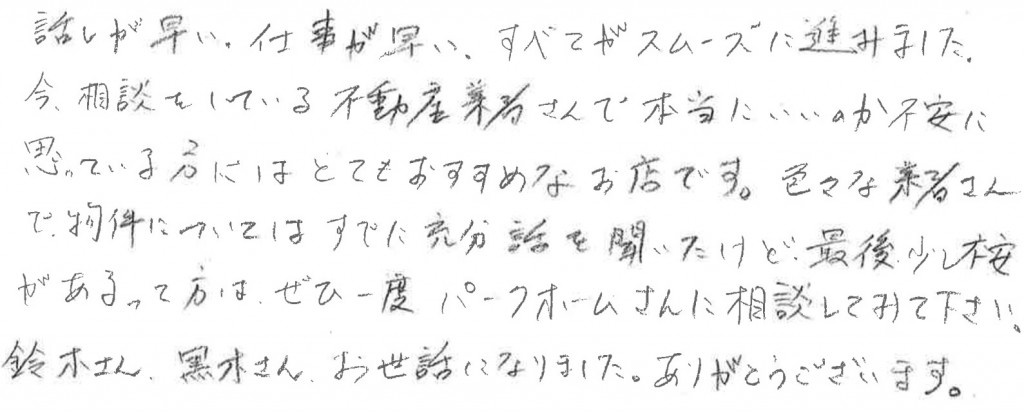 話しが早い。仕事が早い、すべてがスムーズに進みました。
今、相談をしている不動産業者さんで本当にいいのか不安に
思っている方にはとてもおすすめなお店です。色々な業者さん
で、物件についてはすでに充分話を聞いたけど、最後、少し不安
があるって方は、ぜひ一度 パークホームさんに相談してみて下さい。
鈴木さん、黒木さん、お世話になりました。ありがとうございます。